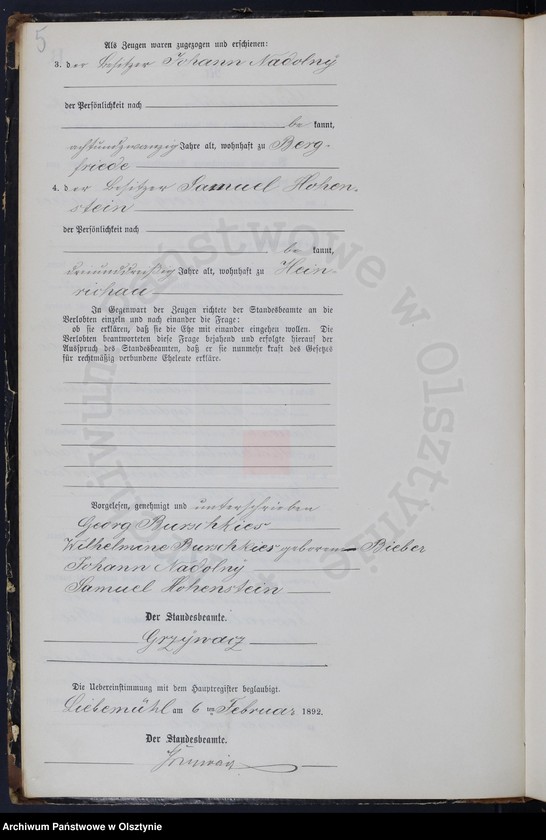 5
Als Zeugen waren zugezogen und erschienen:
3. der Besitzer Johann Nadolny
der Persönlichkeit nach
be kannt,
achtundzwanzig Jahre alt, wohnhaft zu Berg-
friede
4. der Besitzer Samuel Hohen-
stein
der Persönlichkeit nach
be kannt,
Jahre alt, wohnhaft zu Hein-
richau
In Gegenwart der Zeugen richtete der Standesbeamte an die
Verlobten einzeln und nach einander die Frage:
ob sie erklären, daß sie die Ehe mit einander eingehen wollen. Die
Verlobten beantworteten diese Frage bejahend und erfolgte hierauf der
Ausspruch des Standesbeamten, daß er sie nunmehr kraft des Gesetzes
für rechtmäßig verbundene Eheleute erkläre.
Vorgelesen, genehmigt und unterschrieben
Georg Burschkies
Wilhelmine Burschkies geborene Bieber
Johann Nadolny
Samuel Hohenstein
Der Standesbeamte.
Grzywacz
Die Uebereinstimmung mit dem Hauptregister beglaubigt.
Liebemühl am 6 ten Februar 1892.
Der Standesbeamte.
Archiwum Państwowe w Olsztynie
Archiwum Państwowe w Olsztynie